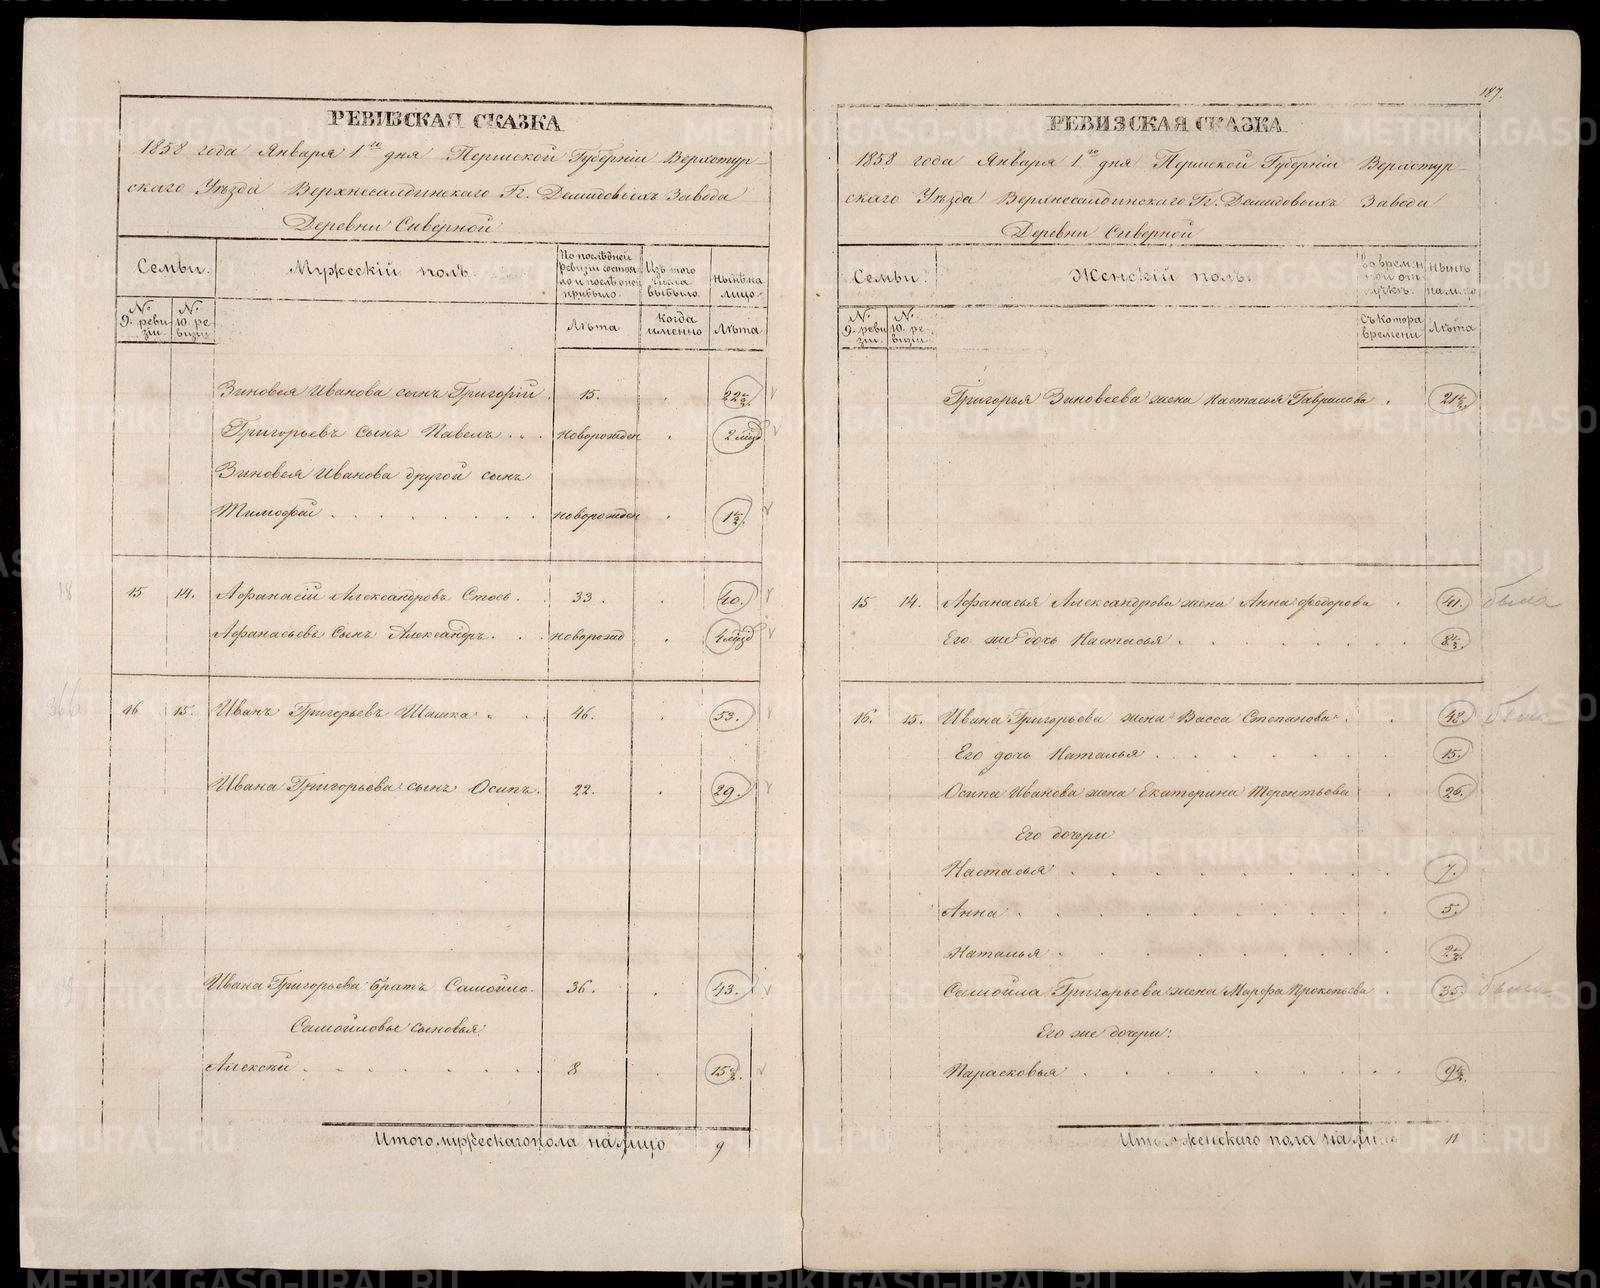 РЕВИЗСКАЯ СКАЗКА
1858 года Января 1го дня Пермской Губерніи Верхотур-
скаго Уѣзда Верхнесалдинскаго Гг. Демидовыхъ Завода
Деревни Сиверной
Семьи.
Мужескій полъ.
По послѣдней ревизіи состояло и послѣ оной прибыло.
Изъ того числа выбыло.
Нынѣ на лицо.
№ 9. ревизіи.
№ 10. ревизіи.
Лѣта
Когда именно
Лѣта
Зиновея Иванова сынъ Григорій. 15. 22½.
Григорьевъ сынъ Павелъ . . . новорожден 2
Зиновея Иванова другой сынъ
Тимофей . . . . . . новорожден 1½.
15 14. Афанасій Александровъ . . 33. 40.
Афанасьевъ сынъ Александръ . . новорожд 4
16 15. Иванъ Григорьевъ Шашка . . 46. 53.
Ивана Григорьева сынъ Осипъ. 22. 29.
Ивана Григорьева братъ Самойло. 36. 43.
Самойловы сыновья
Алексѣй . . . . . . 8 15½.
Итого мужескаго пола на лицо 9
187.
РЕВИЗСКАЯ СКАЗКА
1858 года Января 1го дня Пермской Губерніи Верхотур-
скаго Уѣзда Верхнесалдинскаго Гг. Демидовыхъ Завода
Деревни Сиверной
Семьи.
Женскій полъ.
Во временной отлучкѣ.
Нынѣ на лицо
№ 9. ревизіи.
№ 10. ревизіи.
Съ котора времени
Лѣта
Григорья Зиновеева жена Настасья Гаврилова . 21½.
15 14. Афанасья Александрова жена Анна Федорова . 41.
Его же дочь Настасья . . . . . . 8½.
16. 15. Ивана Григорьева жена Васса Степанова . . 48.
Его дочь Наталья . . . . . . 15.
Осипа Иванова жена Екатерина Терентьева . 26.
Его дочери
Настасья . . . . . . 7.
Анна . . . . . . 5.
Наталья . . . . . . 2½.
Самойла Григорьева жена Марфа Прокопьева . 35
Его же дочери:
Парасковья . . . . . . 9½.
Итого женскаго пола на лицо 11
METRIKI.GASO-URAL.RU